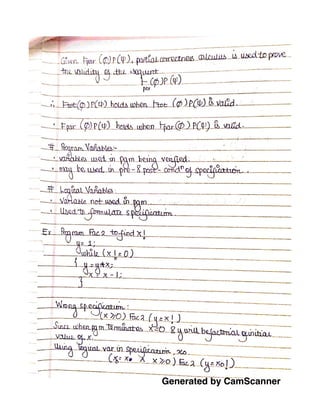 Given ⊨par (∅)P(Ψ), partial correctness calculus is used to prove
the validity of the sequent
⊢ (∅)P(Ψ)
par
∴ ⊨tot(∅)P(Ψ) holds when ⊢tot (∅)P(Ψ) is valid.
• ⊨par (∅)P(Ψ) holds when ⊢par(∅)P(Ψ) is valid.
# Program Variables-
• variables used in pgm being verified.
• may be used in pre- & post- condn of specification.
# Logical Variables-
• Variable not used in pgm
• Used to formulate specification.
Ex. Program Fac 2 to find x!
y = 1;
while (x != 0)
{ y = y*x;
x = x - 1;
}
Wrong specification:
(x ≥ 0) Fac 2 (y = x!)
Since when pgm terminates x=0 & y will be factorial of initial
value of x.
Using logical var in specification, x0
(x = x0 ∧ x ≥ 0) Fac 2 (y = x0!)
Generated by CamScanner